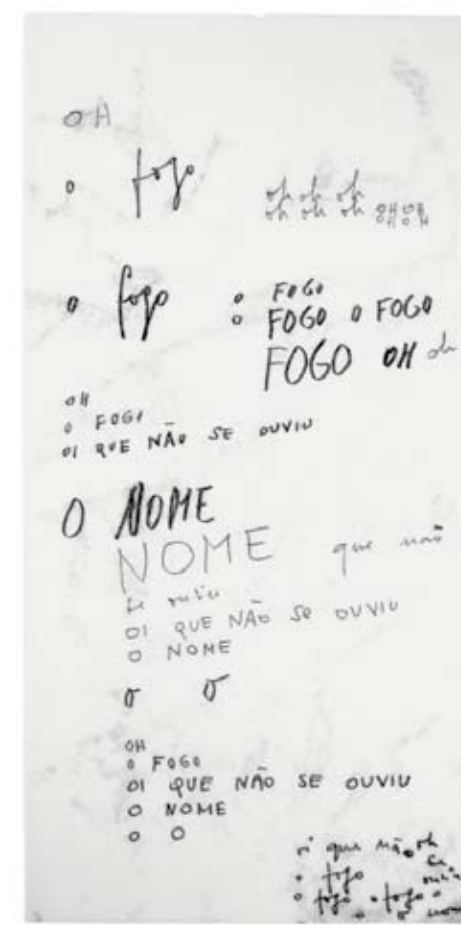 OH
o fogo
oh oh oh
oh oh oh OH OH
o fogo
o FOGO
o FOGO O FOGO
FOGO OH oh
OH
O FOGO
OI QUE NÃO SE OUVIU
O NOME
NOME que não
se ouviu
OI QUE NÃO SE OUVIU
O NOME
o o
OH
O FOGO
OI QUE NÃO SE OUVIU
O NOME
O O
oi que não oh
o fogo
o fogo o fogo